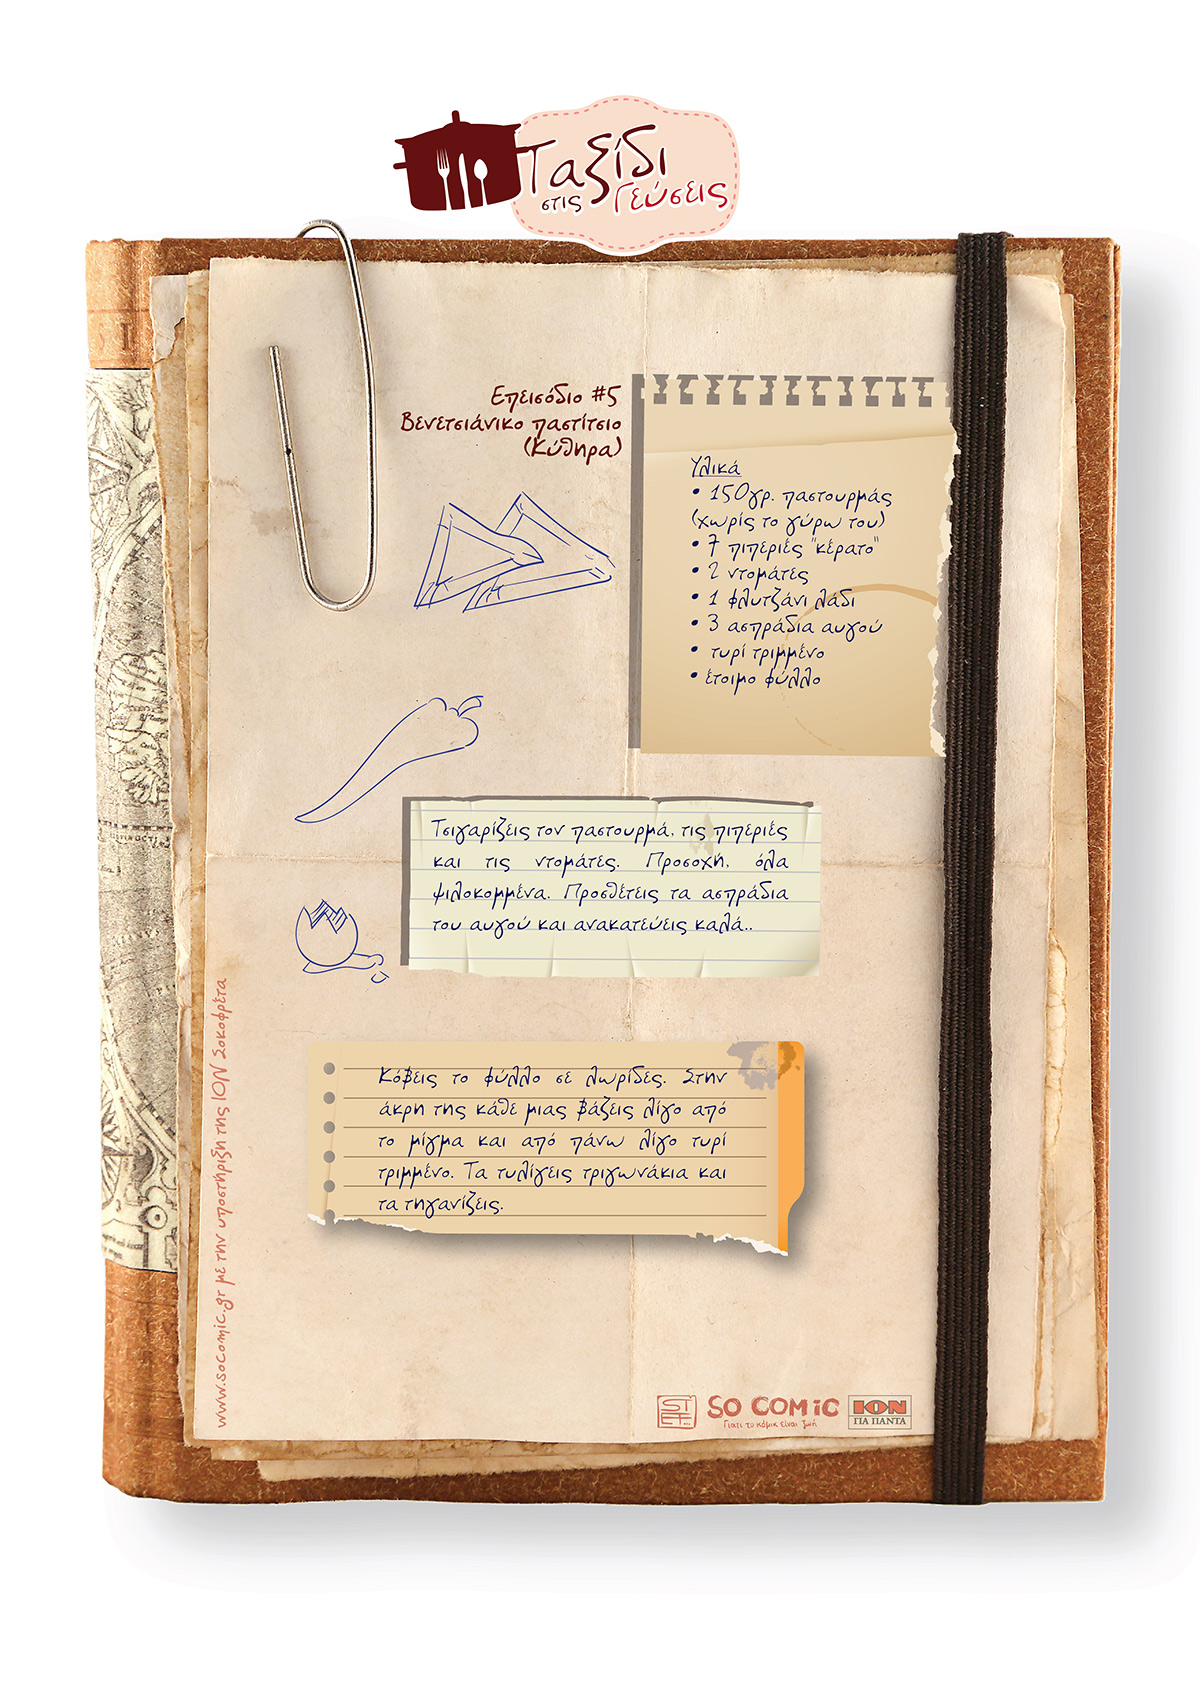 Ταξίδι
στις Γεύσεις
Επεισόδιο #5
Βενετσιάνικο παστίτσιο
(Κύθηρα)
Υλικά
• 150γρ. παστουρμάς
(χωρίς το γύρω του)
• 7 πιπεριές "κέρατο"
• 2 ντομάτες
• 1 φλυτζάνι λάδι
• 3 ασπράδια αυγού
• τυρί τριμμένο
• έτοιμο φύλλο
Τσιγαρίζεις τον παστουρμά, τις πιπεριές
και τις ντομάτες. Προσοχή, όλα
ψιλοκομμένα. Προσθέτεις τα ασπράδια
του αυγού και ανακατεύεις καλά..
Κόβεις το φύλλο σε λωρίδες. Στην
άκρη της κάθε μιας βάζεις λίγο από
το μίγμα και από πάνω λίγο τυρί
τριμμένο. Τα τυλίγεις τριγωνάκια και
τα τηγανίζεις.
www.socomic.gr με την υποστήριξη της ΙΟΝ Σοκοφρέτα
SO COMiC
Γιατί το κόμικ είναι ζωή
ΙΟΝ
ΓΙΑ ΠΑΝΤΑ